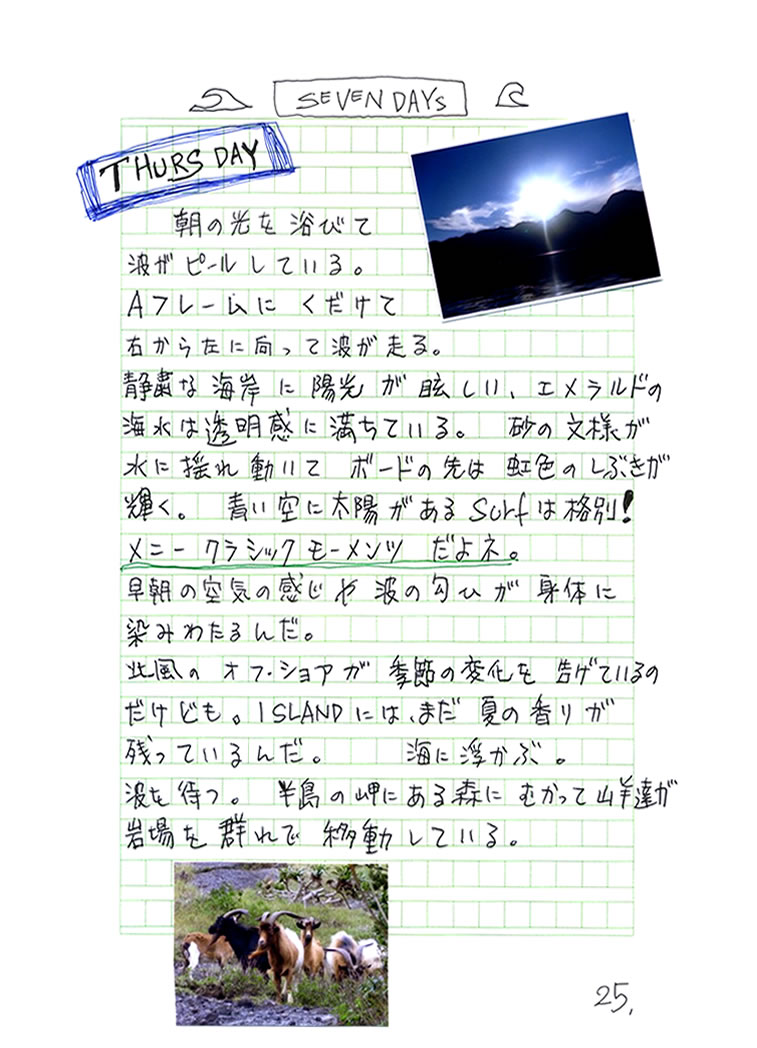 SEVEN DAYs
THURSDAY
朝の光を浴びて
波がピールしている。
Aフレームに くだけて
右から左に向って波が走る。
静粛な海岸に陽光が眩しい、エメラルドの
海水は透明感に満ちている。 砂の文様が
水に揺れ動いて ボードの先は虹色のしぶきが
輝く。 青い空に太陽がある Surfは格別!
メニー クラシックモーメンツ だよネ。
早朝の空気の感じや 波の匂ひが 身体に
染みわたるんだ。
北風の オフ・ショアが 季節の変化を 告げているの
だけども。ISLANDには、まだ 夏の香りが
残っているんだ。 海に浮かぶ。
波を待つ。 半島の岬にある森に むかって山羊達が
岩場を群れで移動している。
25.